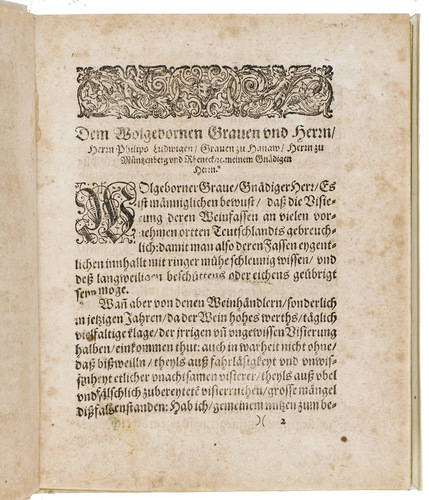 Dem Wolgebornen Grauen vnd Herrn/
Herrn Philips Ludwigen/ Grauen zu Hanaw/ Herrn zu
Müntzenberg vnd Rheneck ꝛc. meinem Gnädigen
Herrn.
WOlgeborner Graue/ Gnädiger Herr/ Es
ist männiglichen bewust/ daß die Visie-
rung deren Weinfassen an vielen vor-
nehmen ortten Teutschlandts gebreuch-
lich: damit man also deren Fassen eygent-
lichen innhallt mit ringer mühe schleunig wissen/ vnd
deß langweiligen beschüttens oder eichens geübrigt
seyn möge.
Wañ aber von denen Weinhändlern/ sonderlich
in jetzigen Jahren/ da der Wein hohes werths/ täglich
vielfaltige klage/ der jrrigen vñ vngewissen Visierung
halben/ einkommen thut: auch in warheit nicht ohne/
daß bißweilln/ theyls auß fahrläsigkeyt vnd vnwis-
senheyt etlicher vnachtsamen visierer/ theyls auß vbel
vnd fälschlich zubereytetẽ visierruthen/ grosse mängel
dißfals enstanden: Hab ich/ gemeinem nutzen zum be-
)( 2